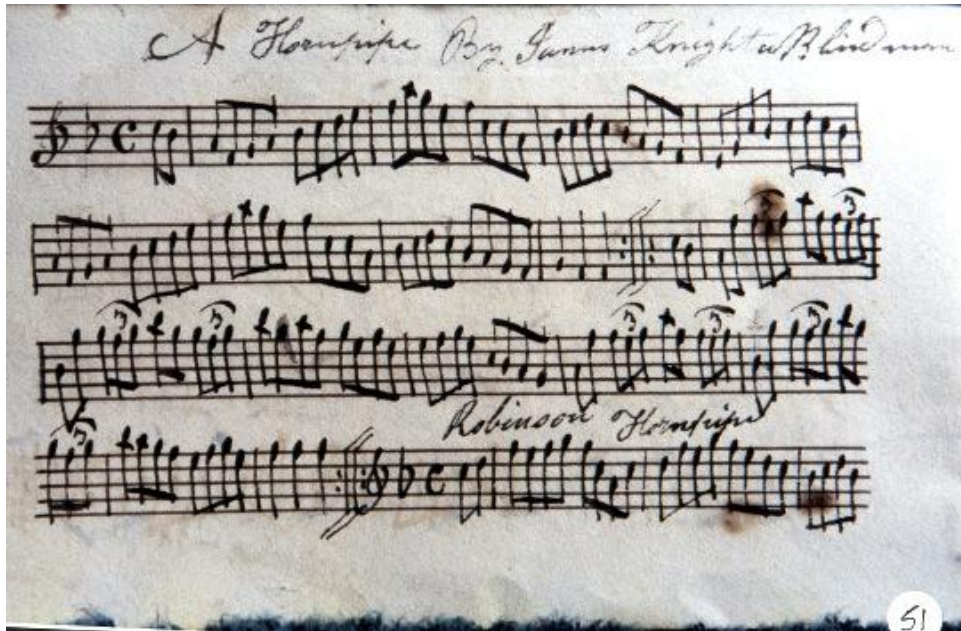 A Hornpipe By James Knight a Blind man
3 3
3 3 3 3 3
Robinson Hornpipe
3
51